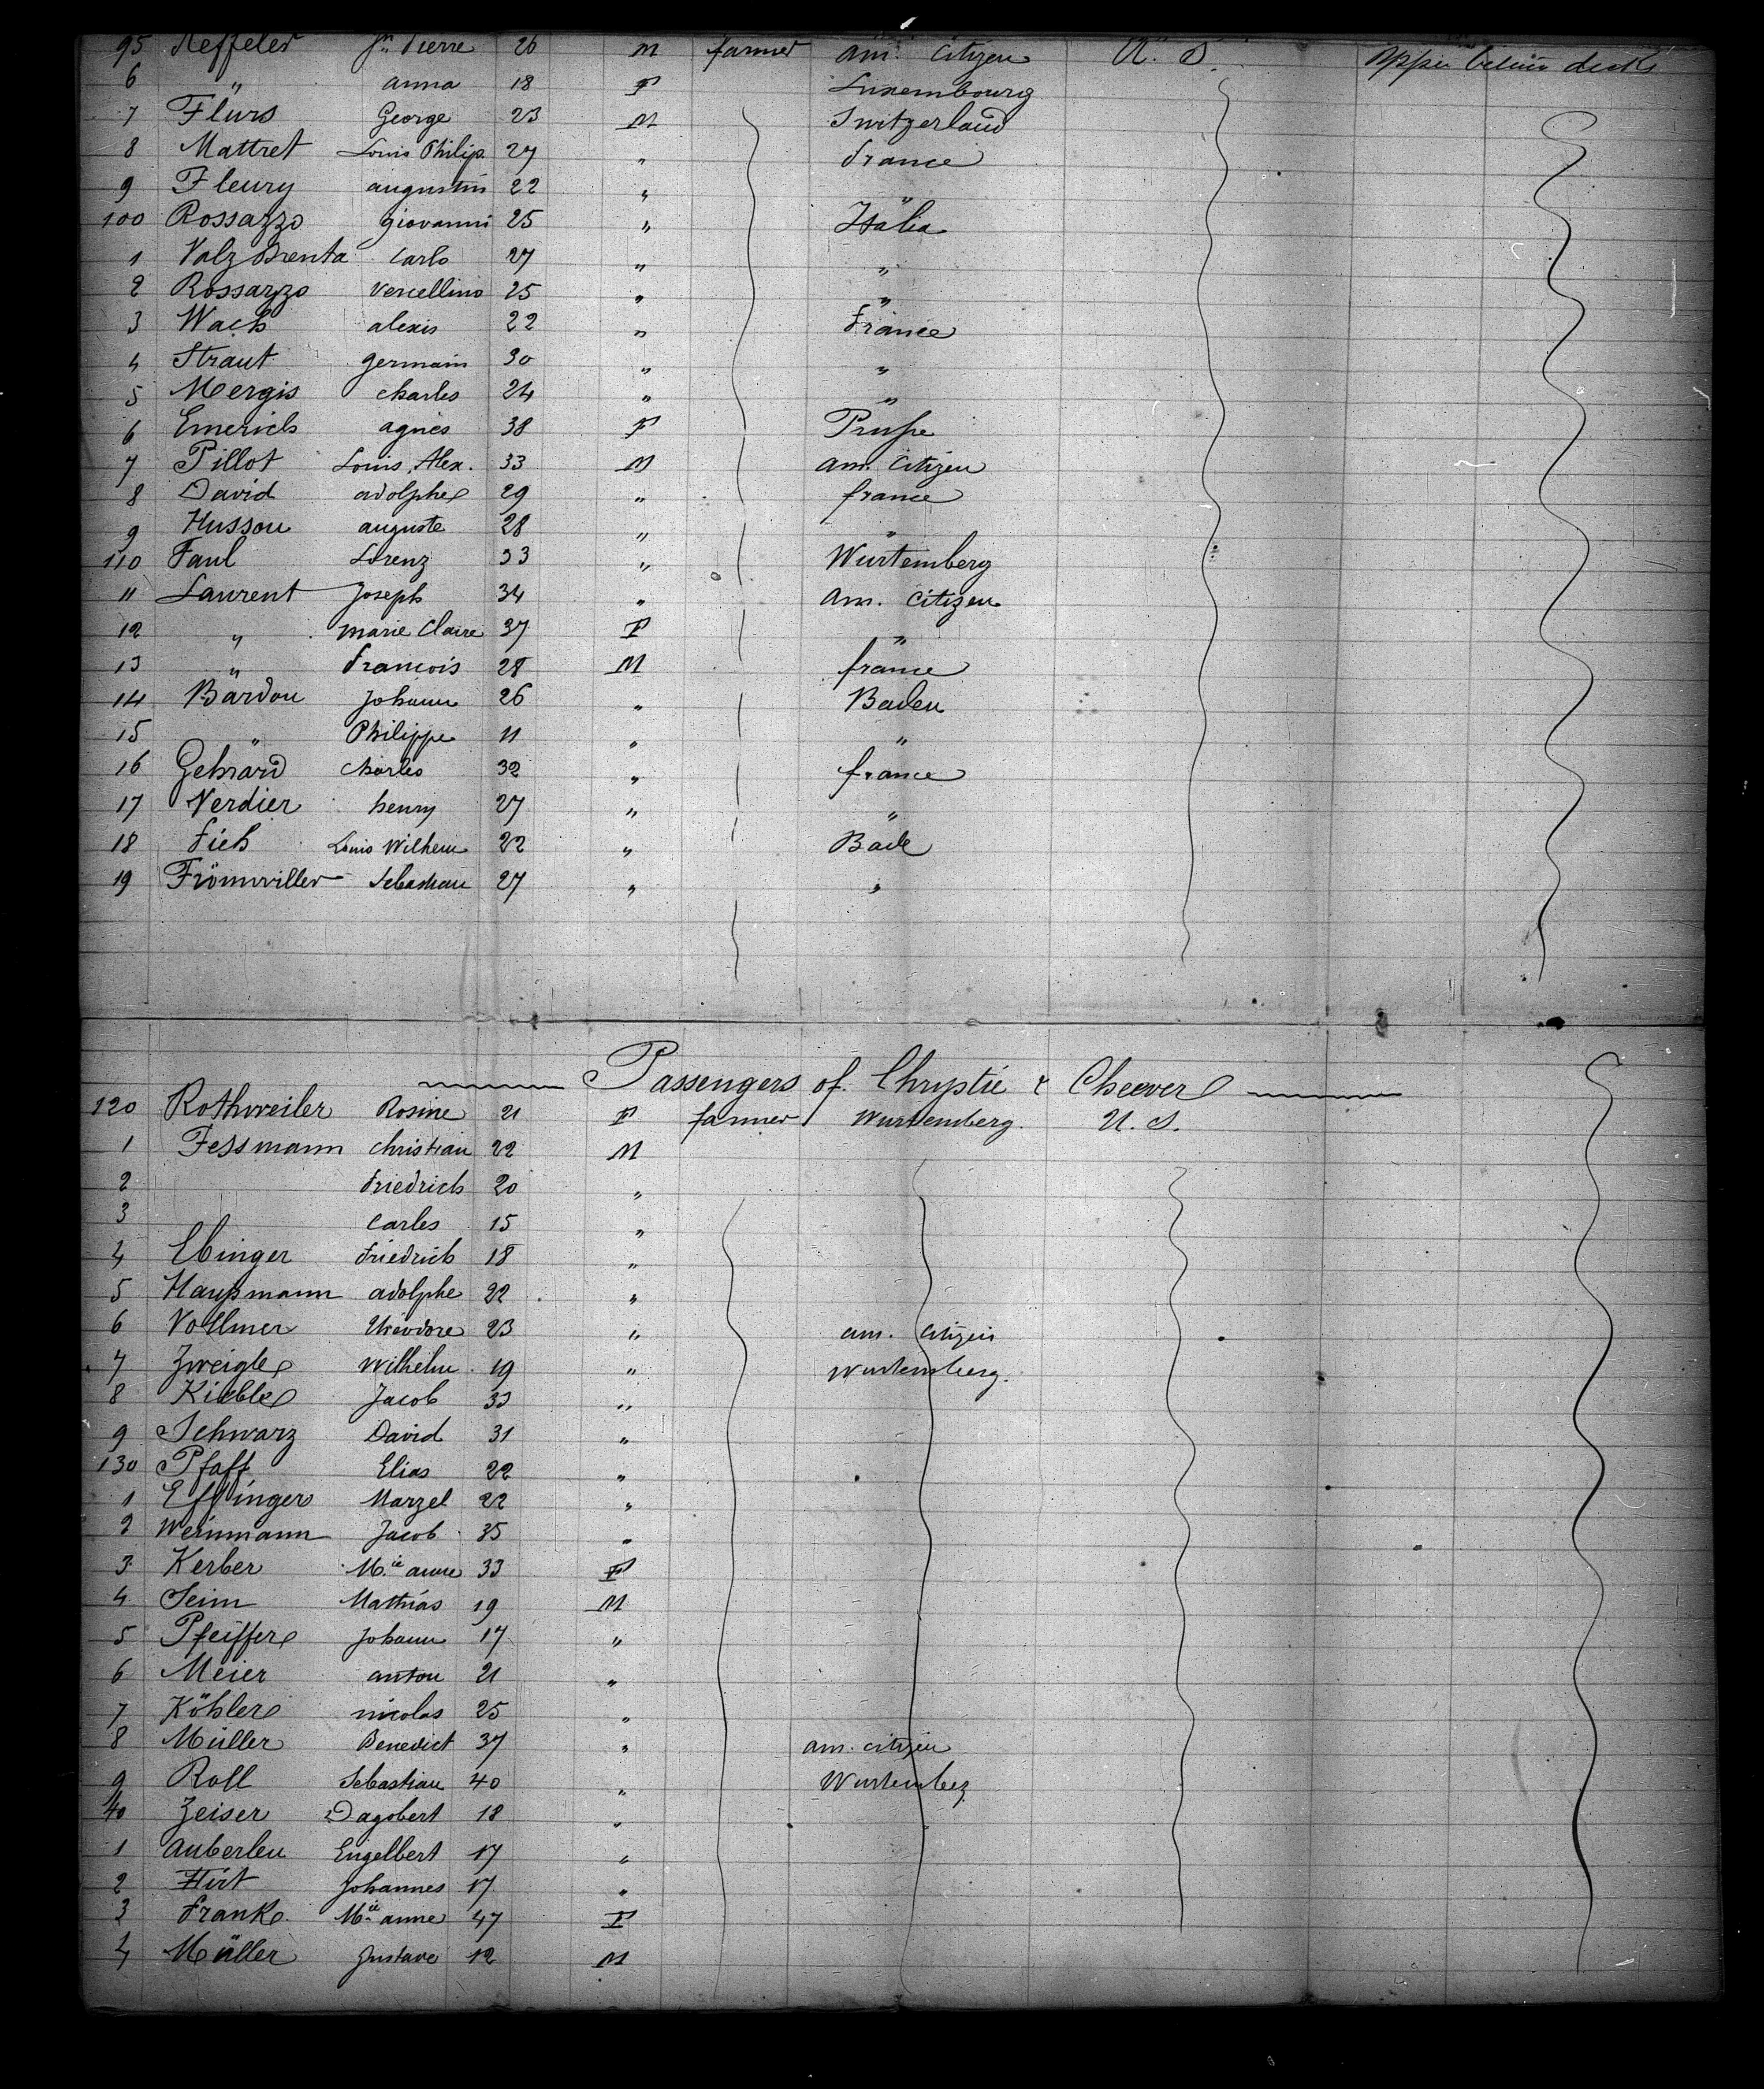 95 Reffeler Jn Pierre 26 M farmer am. Citizen U. S. upper between decks
6 " anna 18 F Luxembourg
7 Flurs George 23 M Switzerland
8 Mattret Louis Philip. 27 " france
9 Fleury augustin 22 " "
100 Rossazzo giovanni 25 " Italia
1 Valz Brenta Carlo 27 " "
2 Rossazzo Vercellino 25 " "
3 Wach alexis 22 " France
4 Straut germain 30 " "
5 Mergis charles 24 " "
6 Emerich agnes 38 F Prusse
7 Pillot Louis Alex. 33 M am. Citizen
8 David adolphe 29 " france
9 Husson auguste 28 " "
110 Faul Lorenz 33 " Wurtemberg
11 Laurent Joseph 34 " am. Citizen
12 " marie Claire 37 F "
13 " francois 28 M france
14 Bärdon Johann 26 " Baden
15 " Philippe 11 " "
16 Gehrard Charles 32 " france
17 Verdier henry 27 " "
18 Fich Louis Wilhem 22 " Bade
19 Frömwiller Sebastian 27 " "
Passengers of. Chrystie & Cheever
120 Rothweiler Rosine 21 F farmer Wurtemberg U. S.
1 Fessmann Christian 22 M
2 friedrich 20 "
3 Carles 15 "
4 Ebinger friedrich 18 "
5 Haußmann adolphe 22 "
6 Vollmer théodore 23 " am. Citizen
7 Zweigle Wilhelm 19 " Wurtemberg.
8 Kieble Jacob 33 "
9 Schwarz David 31 "
130 Pfaff Elias 22 "
1 Efflinger Marzel 22 "
2 Weinmann Jacob 35 "
3 Kerber M.ie anne 33 F
4 Seim Mathias 19 M
5 Pfeiffer Johann 17 "
6 Meier anton 21 "
7 Köhler nicolas 25 "
8 Müller Benedict 37 " am. citizen
9 Roll Sebastian 40 " Wurtemberg
40 Zeiser Dagobert 18 "
1 Auberlen Engelbert 17 "
2 Hirt Johannes 17 "
3 Frank M.ie anne 47 F
4 Müller Gustave 12 M